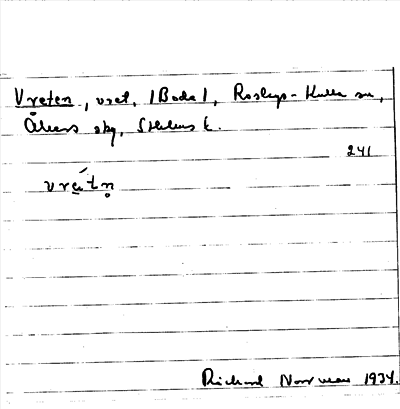 Vreten, vret, /Boda/, Roslags-Kulla sn,
Åkers skg, Sthlms l.
241
vrétn̥
Richard Norrman 1934.